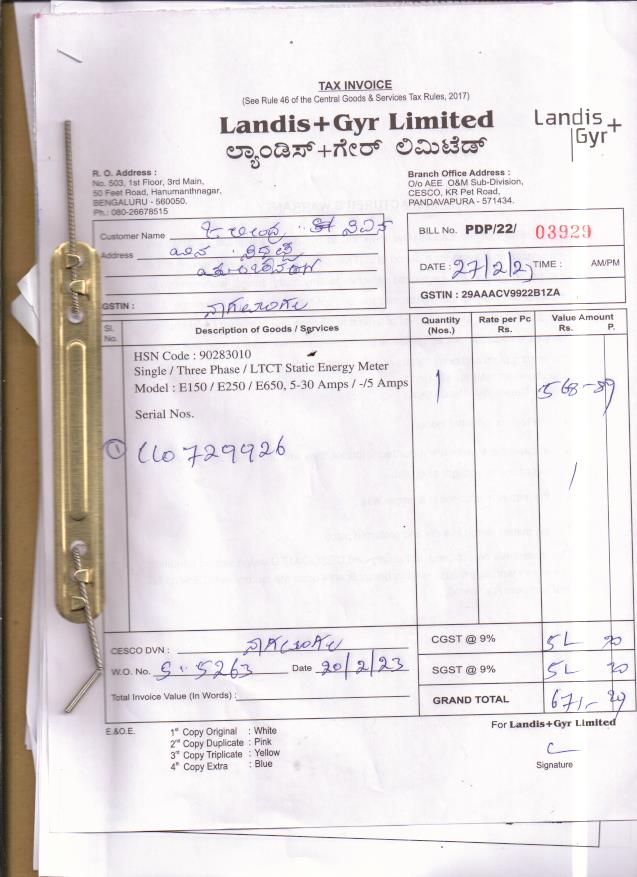 TAX INVOICE
(See Rule 46 of the Central Goods & Services Tax Rules, 2017)
Landis+Gyr Limited
ಲ್ಯಾಂಡಿಸ್+ಗೇರ್ ಲಿಮಿಟೆಡ್
Landis
Gyr+
R. O. Address :
No. 503, 1st Floor, 3rd Main,
50 Feet Road, Hanumanthnagar,
BENGALURU - 560050.
Ph.: 080-26678515
Branch Office Address :
O/o AEE O&M Sub-Division,
CESCO, KR Pet Road,
PANDAVAPURA - 571434.
Customer Name
Address
GSTIN :
BILL No. PDP/22/ 03929
DATE : 27/2/2 TIME : AM/PM
GSTIN : 29AAACV9922B1ZA
Sl. No. Description of Goods / Services Quantity (Nos.) Rate per Pc Rs. Value Amount Rs. P.
HSN Code : 90283010
Single / Three Phase / LTCT Static Energy Meter
Model : E150 / E250 / E650, 5-30 Amps / -/5 Amps 1 568-89
Serial Nos.
1 729926
CESCO DVN :
W.O. No. 5263 Date 20/2/23
Total Invoice Value (In Words) :
CGST @ 9%
SGST @ 9%
GRAND TOTAL 671-29
E.&O.E.
1st Copy Original : White
2nd Copy Duplicate : Pink
3rd Copy Triplicate : Yellow
4th Copy Extra : Blue
For Landis+Gyr Limited
Signature